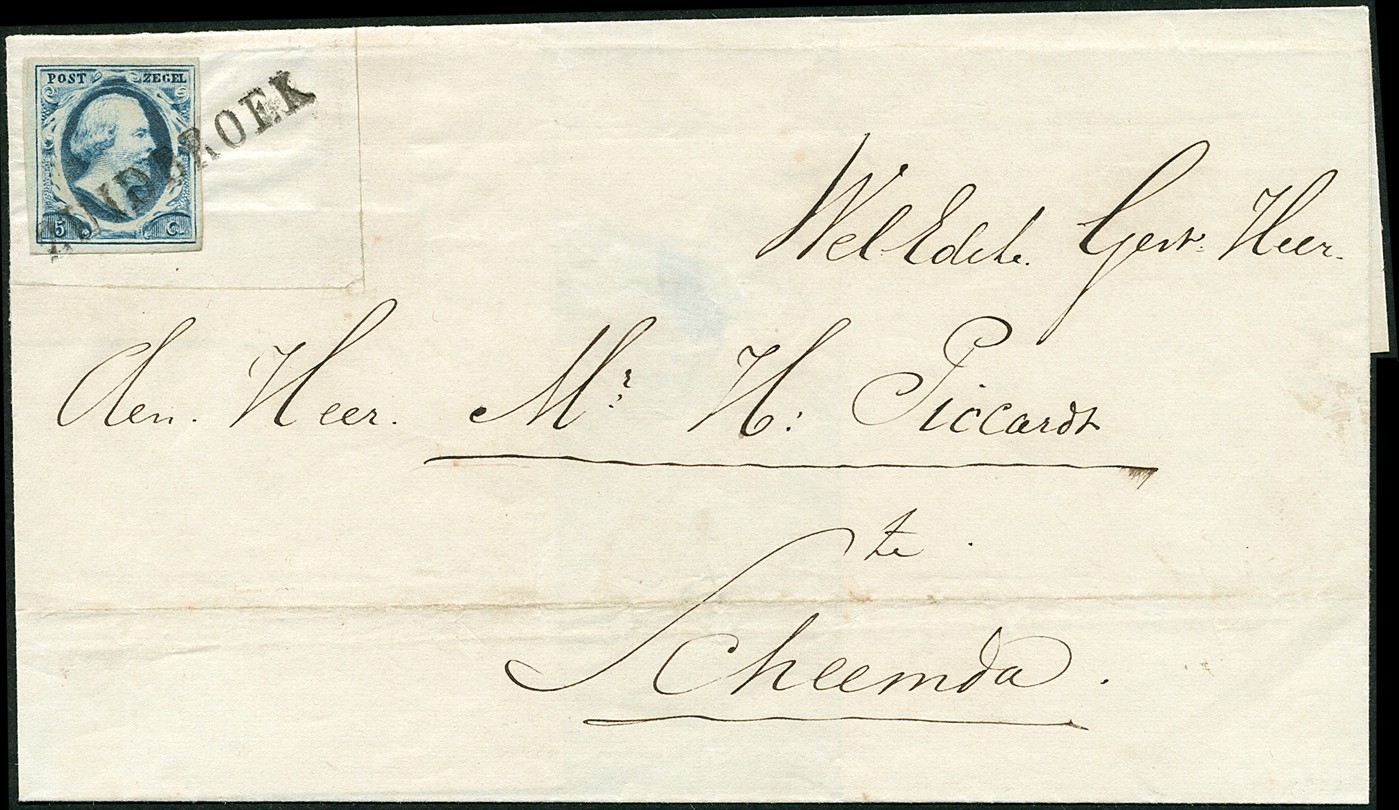 POST ZEGEL
5 C
ZUIDBROEK
Wel Edele. Gestr. Heer.
den. Heer. Mr. H: Piccardt
te.
Scheemda.